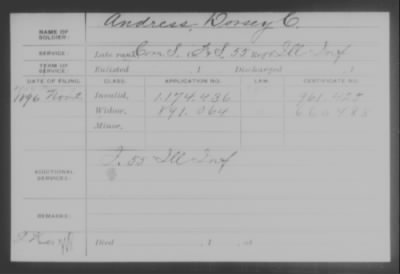 NAME OF SOLDIER: Andress, Dorsey C.
SERVICE: Late rank, Com S. F&S, 55 Reg't Ill Inf
TERM OF SERVICE: Enlisted 1 Discharged 1
DATE OF FILING. CLASS. APPLICATION NO. LAW. CERTIFICATE NO.
1896 Invalid, 1.174.436 961.425
Widow, 891.064
Minor,
ADDITIONAL SERVICES: I. 55 Ill Inf
REMARKS:
Died , 1 , at